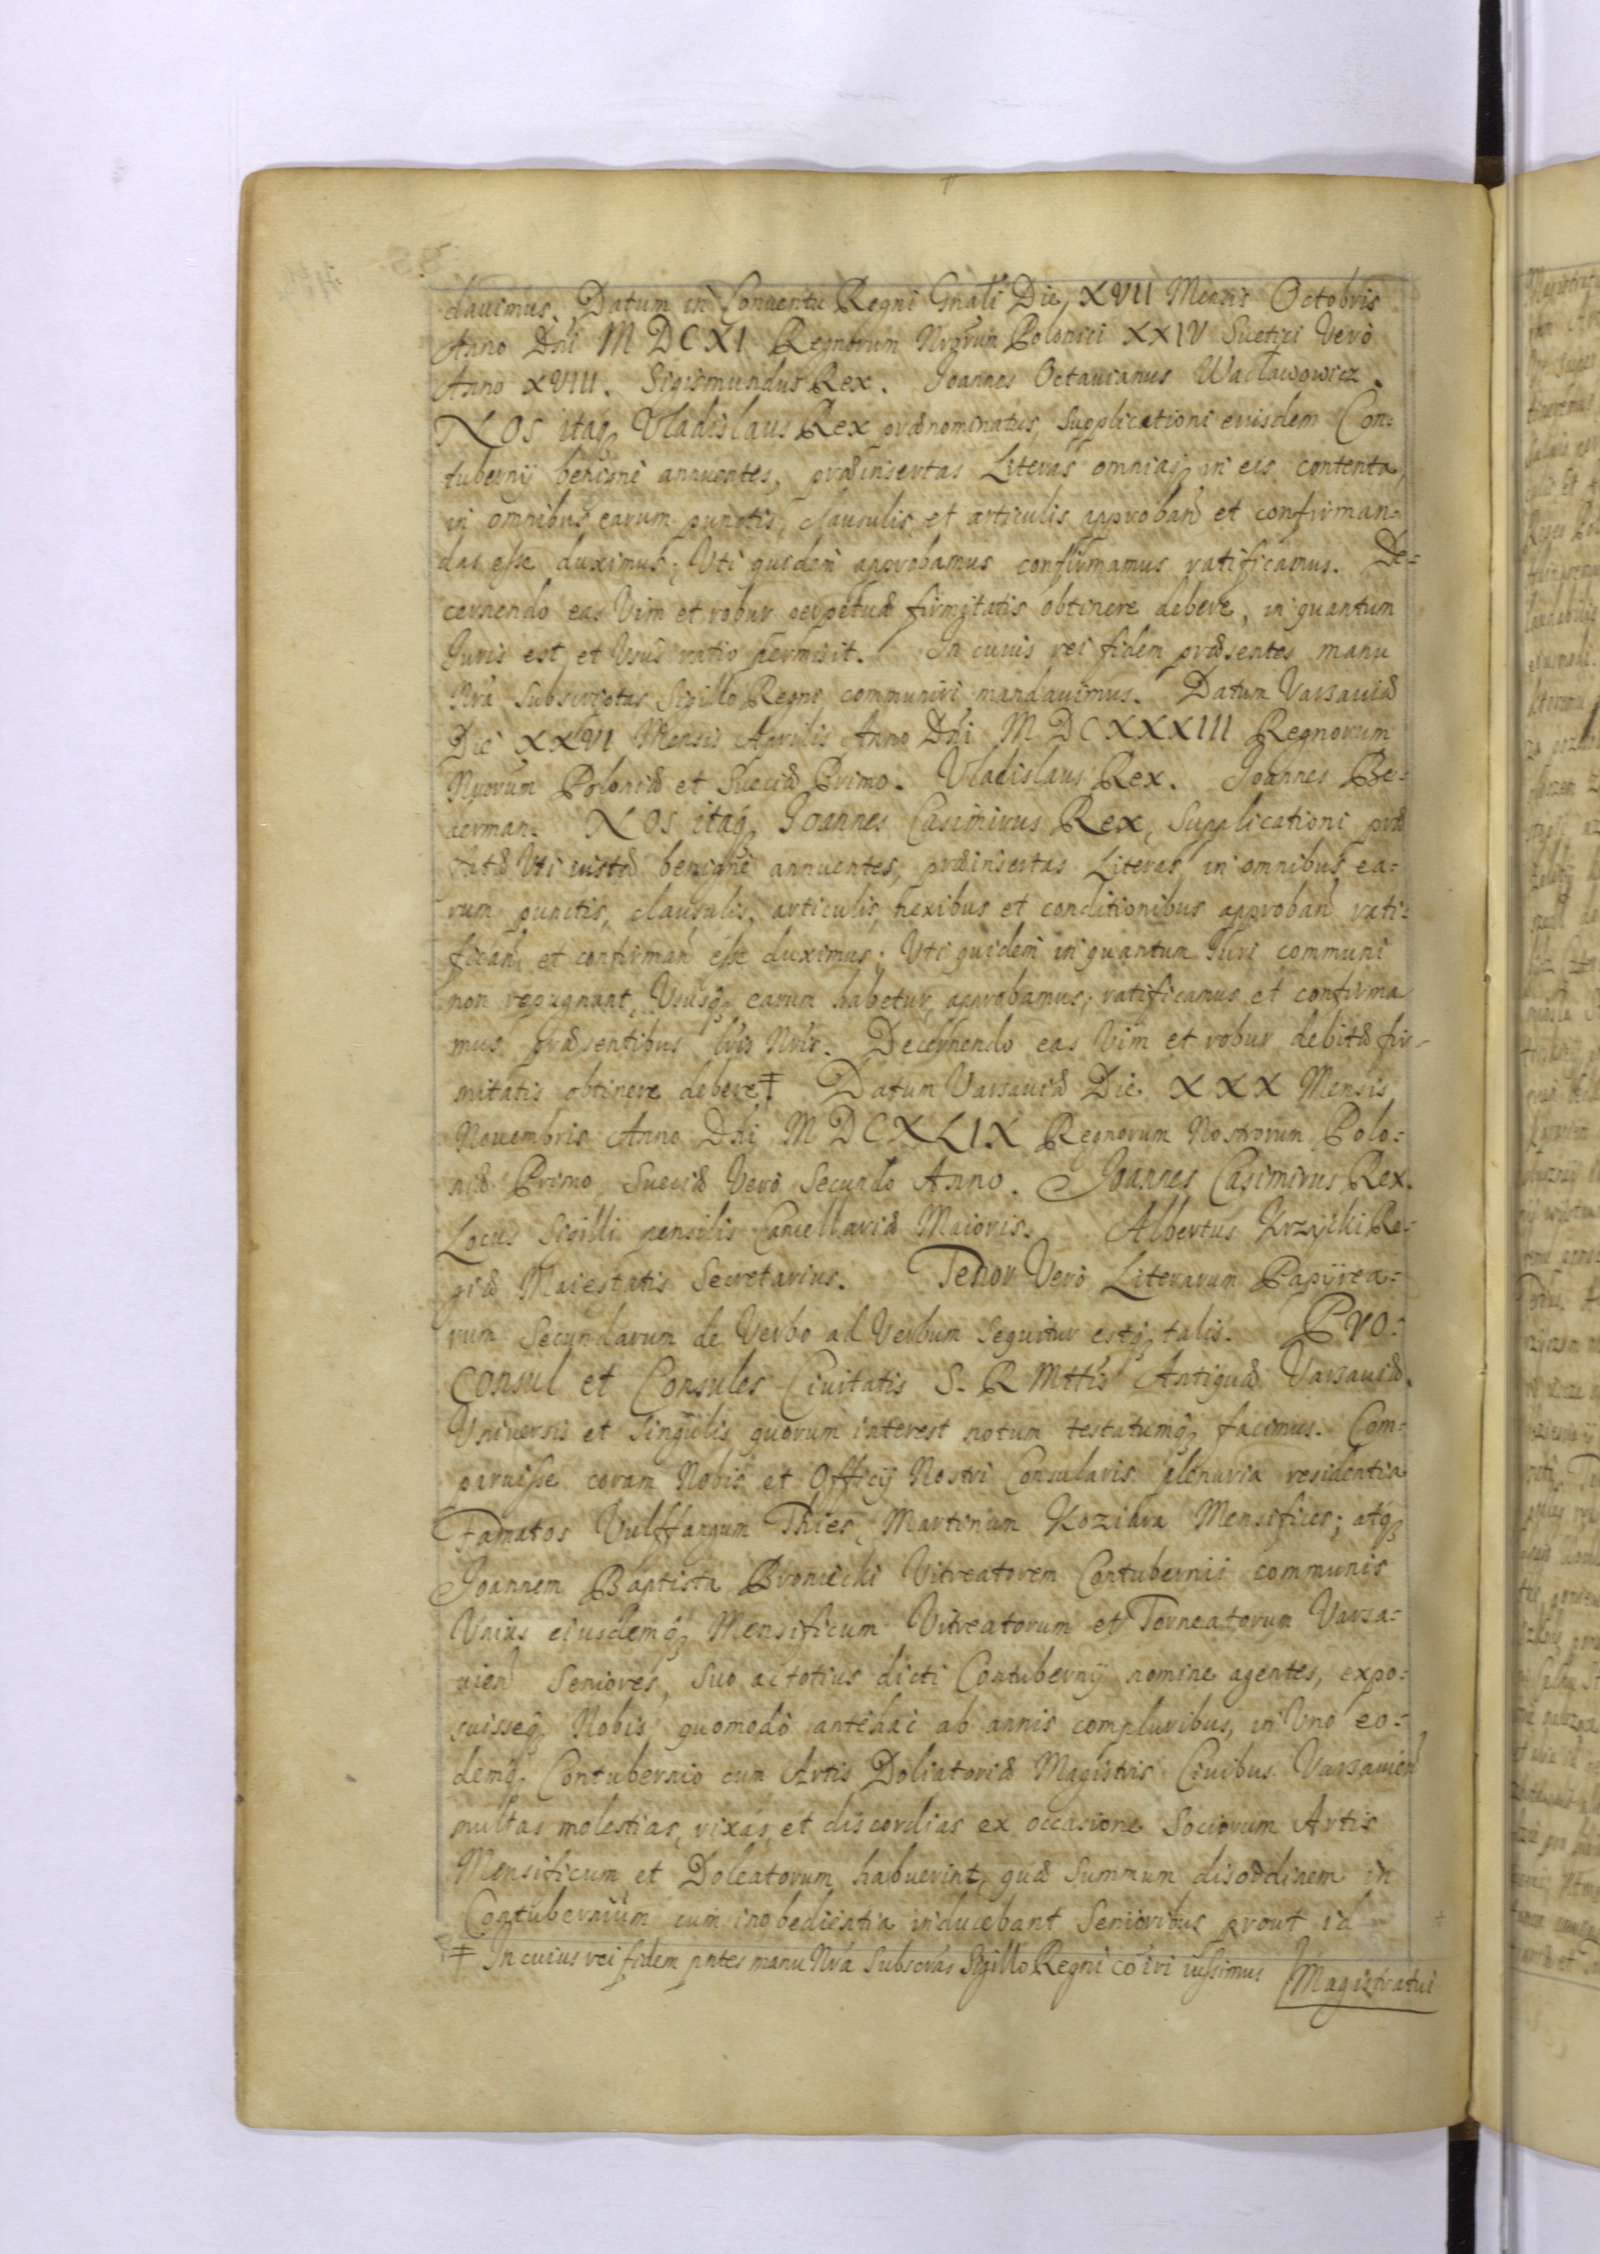 dauimus. Datum in Conuentu Regni Gnali Die XVII Mensis Octobris
Anno Dni MDCXI Regnorum Nrorum Polonici XXIV Suetici Verò
Anno XVIII. Sigismundus Rex. Joannes Octauianus Wacławowicz.
NOS itaq Vladislaus Rex prænominatus, Supplicationi eiusdem Con:
tubernij benigne annuentes, præinsertas Literas omniaq in eis contenta,
in omnibus earum punctis, clausulis, et articulis approband et confirman=
das esse duximus; Vti quidem approbamus confirmamus ratificamus. De=
cernendo eas Vim et robur perpetuæ firmitatis obtinere debere, in quantum
Juris est, et Usus ratio permisit. In cuius rei fidem præsentes manu
Nrâ Subscriptas Sigillo Regni communiri mandauimus. Datum Varsauiæ
Die XXVI Mensis Aprilis Anno Dni MDCXXXIII Regnorum
Nrorum Poloniæ et Sueciæ Primo. Vladislaus Rex. Joannes Be=
derman. NOS itaq Joannes Casimirus Rex, Supplicationi præ
dictæ Vti iustæ benigne annuentes, præinsertas Literas in omnibus ea=
rum punctis, clausulis, articulis, nexibus et conditionibus approband rati=
ficand et confirmand esse duximus; Vti quidem in quantum Juri communi
non repugnant, Vsusq earum habetur, approbamus, ratificamus et confirma
mus præsentibus lris Nris. Decernendo eas Vim et robur debitæ fir=
mitatis obtinere debere ‡ Datum Varsauiæ Die XXX Mensis
Nouembris Anno Dni MDCXLIX Regnorum Nostrorum Polo=
niæ Primo Sueciæ Verò Secundo Anno. Joannes Casimirus Rex.
Locus Sigilli pensilis Cancellariæ Maioris. Albertus Krzycki Re=
giæ Maiestatis Secretarius. Tenor Verò Literarum Papyrea=
rum Secundarum de Verbo ad Verbum Sequitur estq talis. Pro=
consul et Consules Ciuitatis S. R Mttis Antiquæ Varsauiæ.
Vniuersis et Singulis quorum interest notum testatumq facimus. Com=
paruisse coram Nobis et Officij Nostri Consularis plenaria residentia
Famatos Vulffangum Thies, Martinum Koziara Mensifices; atq
Joannem Baptista Broniecki Vitreatorem Contubernii communis
Vnius eiusdemq Mensificum Vitreatorum et Torneatorum Varsa=
uien Seniores, Suo ac totius dicti Contubernij nomine agentes, expo=
suisseq Nobis quomodo antehac ab annis compluribus, in Vno eo=
demq Contubernio cum Artis Doliatoriæ Magistris Ciuibus Varsauien
multas molestias, rixas, et discordias ex occasione Sociorum Artis
Mensificum et Doleatorum habuerint, quæ Summum disordinem in
Contubernium cum inobedientia inducebant Senioribus prout id
‡ In cuius rei fidem pntes manu Nrâ Subscras Sigillo Regni coiri iussimus
Magistratui